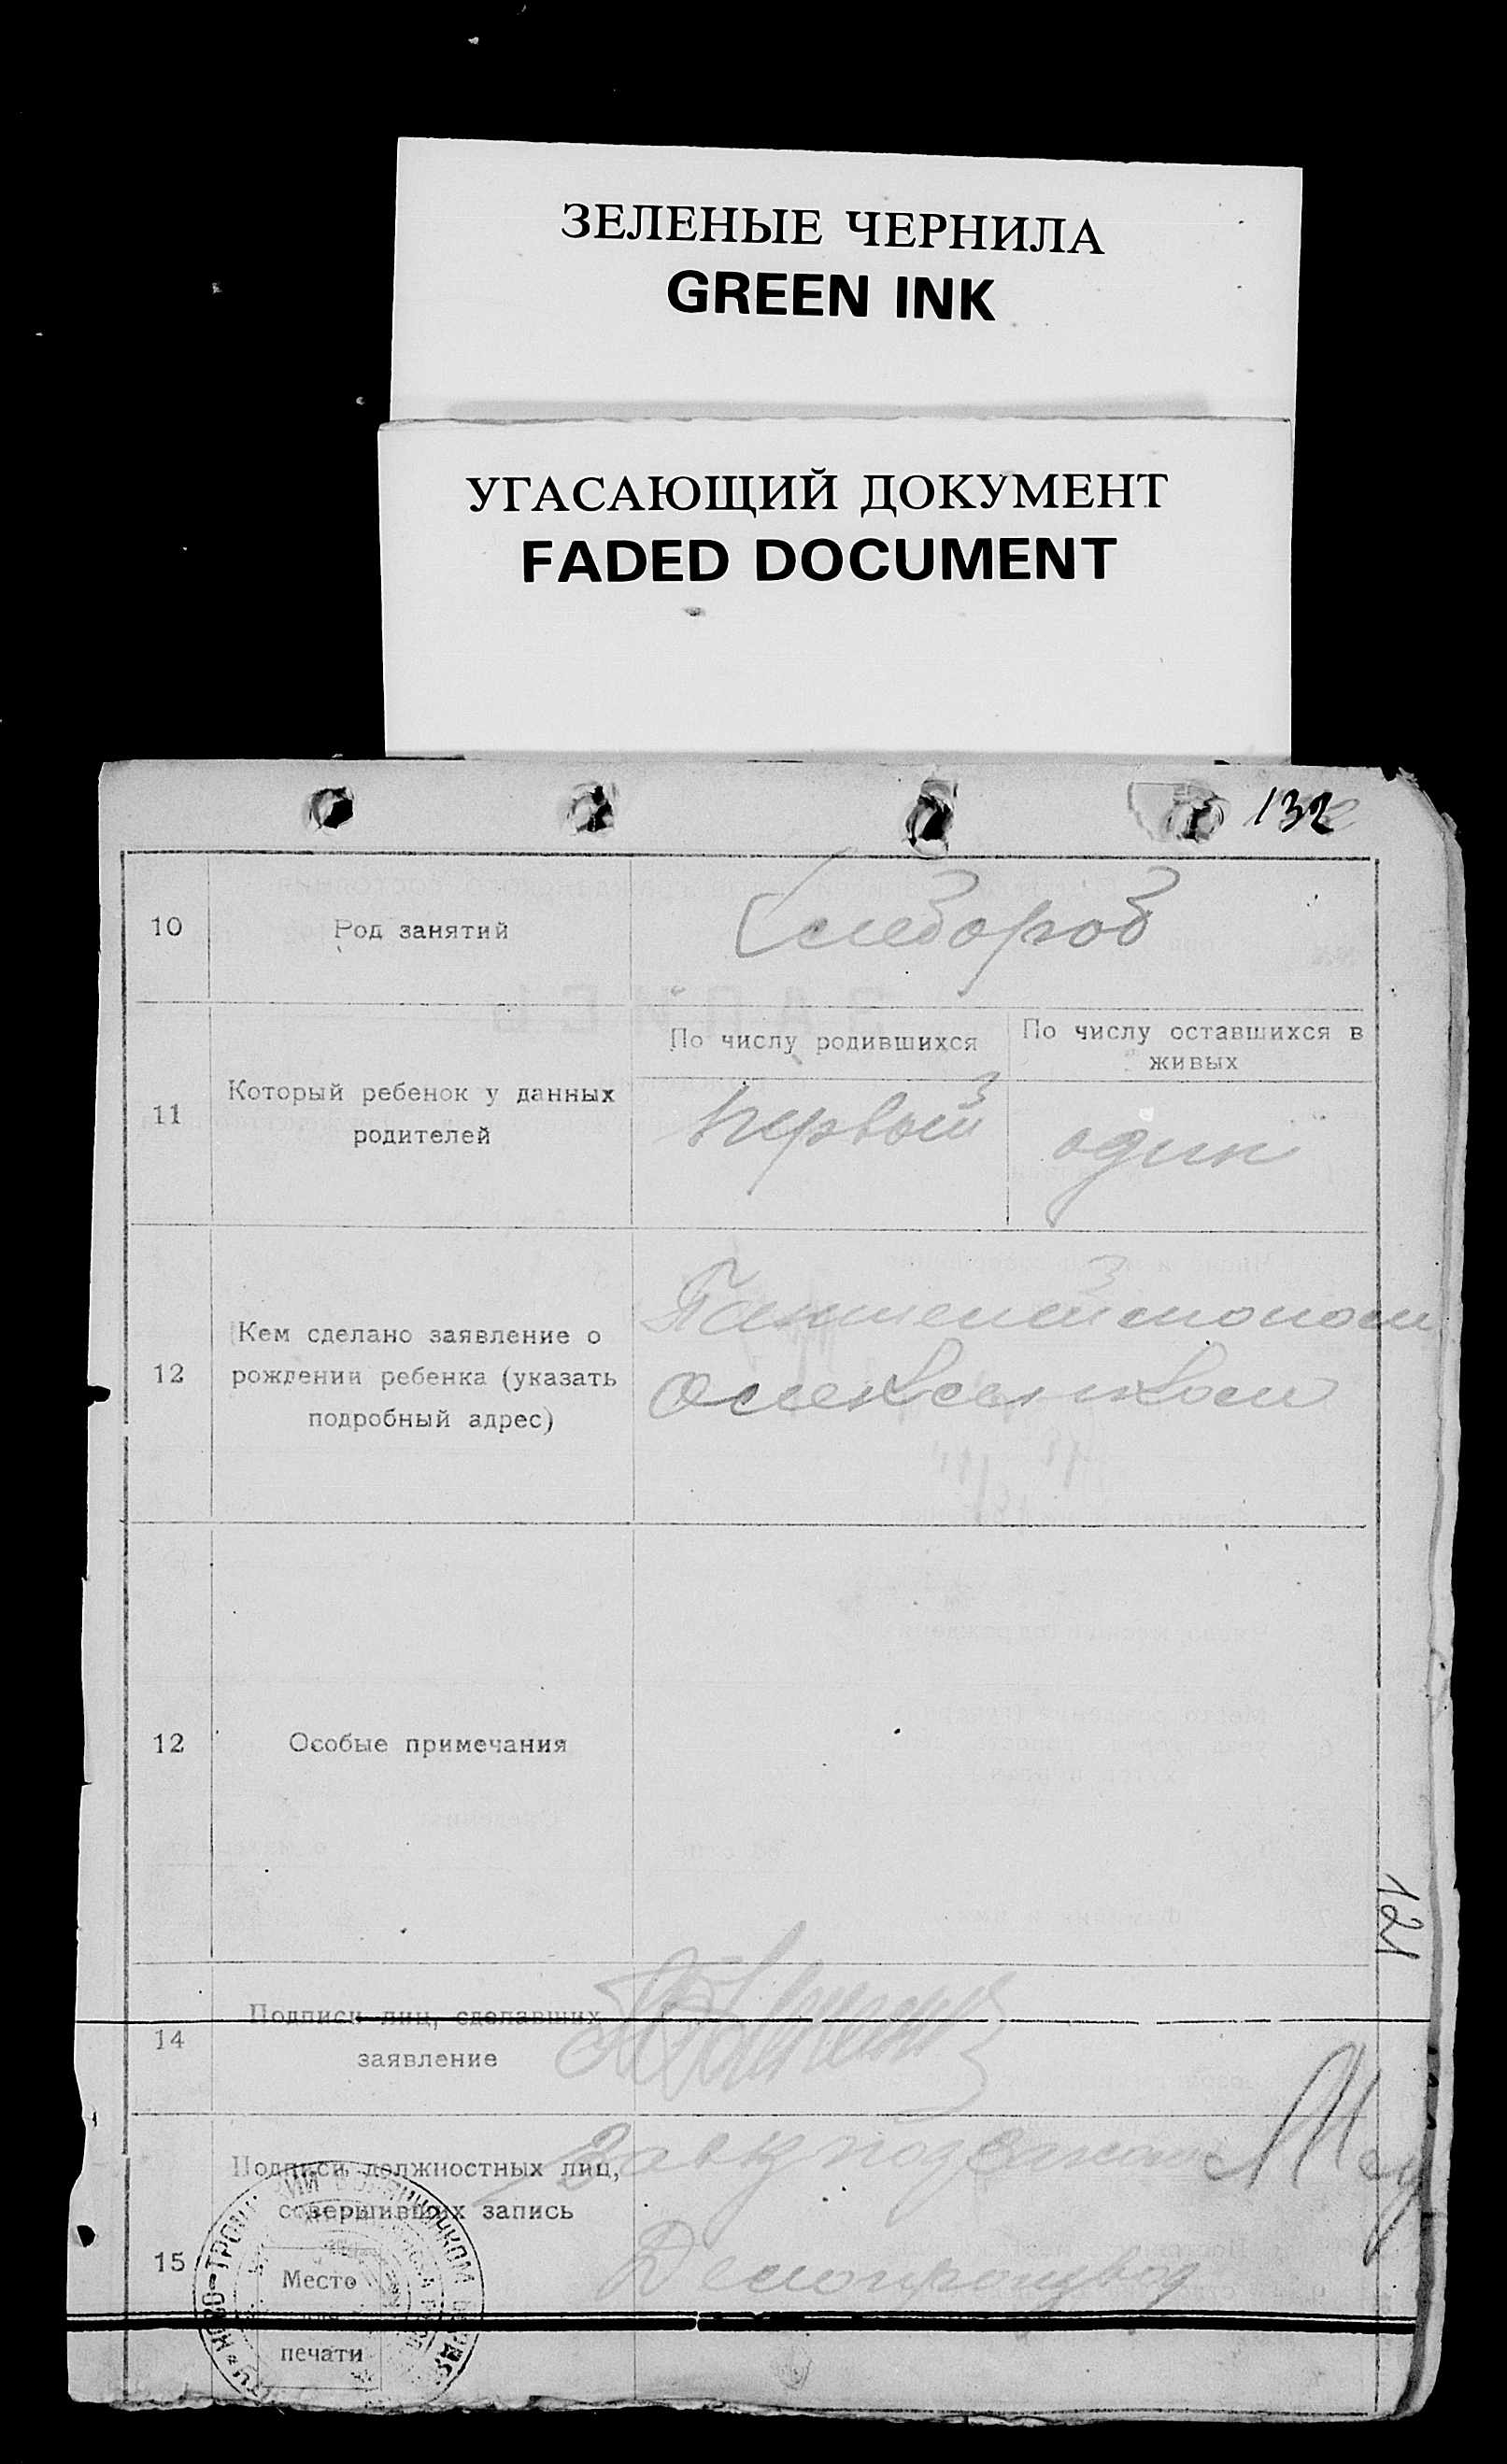 ЗЕЛЕНЫЕ ЧЕРНИЛА
GREEN INK
УГАСАЮЩИЙ ДОКУМЕНТ
FADED DOCUMENT
132
10
Род занятий
11
Который ребенок у данных
родителей
По числу родившихся
По числу оставшихся в
живых
первый
один
12
Кем сделано заявление о
рождении ребенка (указать
подробный адрес)
12
Особые примечания
121
14
Подписи лиц, сделавших
заявление
15
Подписи должностных лиц,
совершивших запись
Делопроизвод
Место
печати